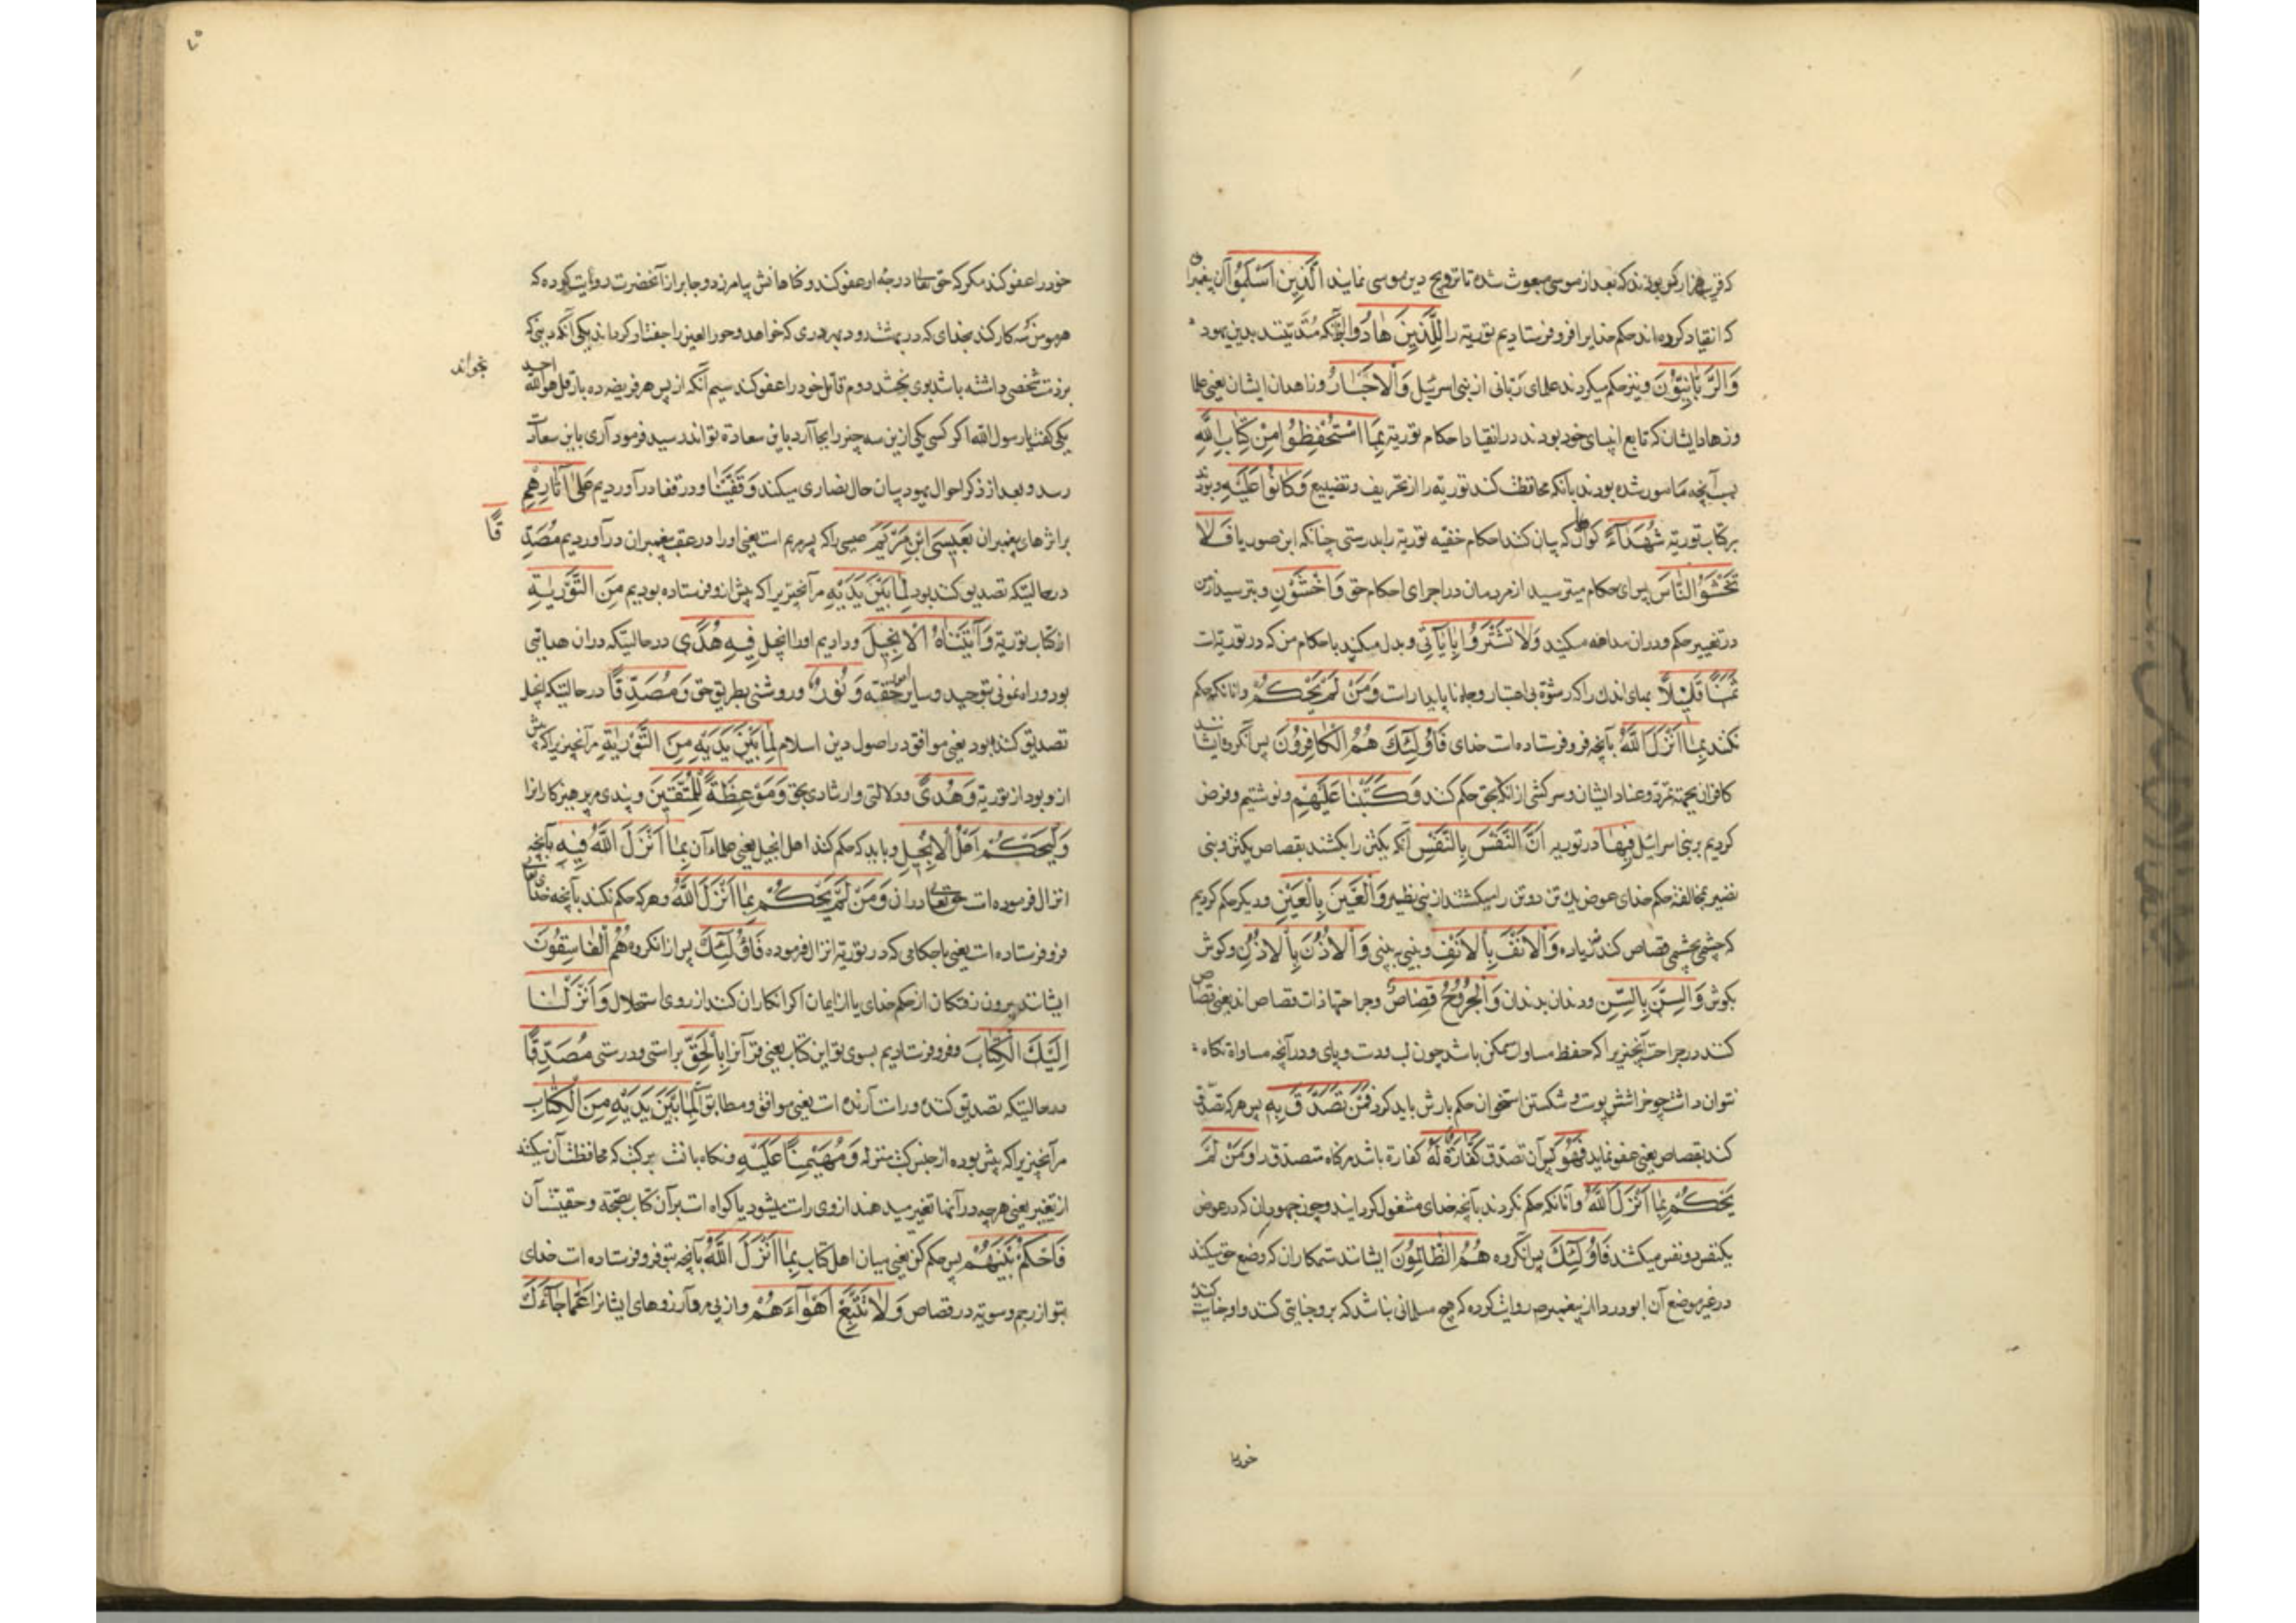 که قریب هزار کس بودند که بعد از موسی مبعوث شده تا ترویج دین موسی نمایند الَّذِینَ اَسْلَمُوْا آن پیغمبران
که انقیاد کرده‌اند حکم خدایرا فرو فرستادیم توریة را لِلَّذِینَ هَادُوا آنانکه متدینند بدین یهود
وَالرَّبَّانِیُّوْنَ و نیز حکم میکردند علمای ربانی از بنی اسرئیل وَالْاَحْبَارُ و زاهدان ایشان یعنی علما
و زهاد ایشان که تابع انبیای خود بودند در انقیاد احکام توریة بِمَا اسْتُحْفِظُوْا مِنْ کِتَابِ اللَّهِ
بسبب آنچه مامور شده بودند بانکه محافظت کنند توریه را از تحریف و تضییع وَکَانُوْا عَلَیْهِ و بودند
بر کتاب توریة شُهَدَآءَ کواهان که بیان کنند احکام خفیه توریة را بدرستی چنانکه ابن صوریا فَلَا
تَخْشَوُا النَّاسَ پس ای حکام مترسید از مردمان در اجرای احکام حق وَاخْشَوْنِ و بترسید از من
در تغییر حکم و دران مداهنه مکنید وَلَا تَشْتَرُوْا بِاٰیَاتِی و بدل مکنید باحکام من که در توریة است
ثَمَنًا قَلِیْلًا بهای اندك را که رشوة بی اعتبار و جاه ناپایدارست وَمَنْ لَمْ یَحْکُمْ و آنانکه حکم
نکنند بِمَا اَنْزَلَ اللَّهُ بآنچه فرو فرستاده است خدای فَاُولٰئِكَ هُمُ الْکَافِرُوْنَ پس آنکروه ایشانند
کافران بجهة تمرد و عناد ایشان و سرکشی از آنکه بحق حکم کنند وَکَتَبْنَا عَلَیْهِمْ و نوشتیم و فرض
کردیم بر بنی اسرائیل فِیهَا در توریه اَنَّ النَّفْسَ بِالنَّفْسِ آنکه یکتن را بکشند بقصاص یکتن و بنی
نضیر بمخالفت حکم خدای عوض یك تن دو تن را میکشتند از بنی نظیر وَالْعَیْنَ بِالْعَیْنِ و دیکر حکم کردیم
که چشمی بچشمی قصاص کنند نه زیاده وَالْاَنْفَ بِالْاَنْفِ و بینی به بینی وَالْاُذُنَ بِالْاُذُنِ و کوش
بکوش وَالسِّنَّ بِالسِّنِّ و دندان بدندان وَالْجُرُوْحَ قِصَاصٌ و جراحتها ذات قصاص اند یعنی قصاص
کنند در جراحت آنچیزیرا که حفظ مساوات ممکن باشد چون لب و دست و پای و در آنچه مساواة نکاه
نتوان داشت چو خراشش پوست و شکستن استخوان حکم بارش باید کرد فَمَنْ تَصَدَّقَ بِهِ پس هر که تصدق
کند بقصاص یعنی عفو نماید فَهُوَ پس آن تصدق کَفَّارَةٌ لَهُ کفارة باشد مر کناه متصدق را وَمَنْ لَمْ
یَحْکُمْ بِمَا اَنْزَلَ اللَّهُ و آنانکه حکم نکردند بآنچه خدای مشغول کردانیده چون جهودان که در عوض
یکنفس دو نفس میکشند فَاُولٰئِكَ پس آنکروه هُمُ الظَّالِمُوْنَ ایشانند ستمکاران که وضع حق میکنند
در غیر موضع آن ابو دردا از پیغمبر ص روایت کرده که هیچ مسلمانی نباشد که برو جنایتی کنند و او جنایت کننده
خود را
خود را عفو کند مکر که حق تعا درجهٔ او عفو کند و کناهانش بیامرزد و جابر از آنحضرت روایت کرده که
هر مومن سه کار کند بجدای که در بهشت رود بهر دری که خواهد و حور العین را جفت او کردانند یکی آنکه دینی که
بر ذمت شخصی داشته باشد بوی بخشد دوم قاتل خود را عفو کند سیم آنکه از پس هر فریضه ده بار قل هو الله احد بخواند
یکی کفت یا رسول الله اکر کسی یکی ازین سه چیز را بجا آرد باین سعادة تواند رسید فرمود آری باین سعادت
رسد و بعد از ذکر احوال یهود بیان حال نصاری میکند وَقَفَّیْنَا و در قفا در آوردیم عَلٰی اٰثَارِهِمْ
بر اثرهای پیغمبران بِعِیْسَی ابْنِ مَرْیَمَ عیسی را که پسر مریم است یعنی او را در عقب پیغمبران در آوردیم مُصَدِّقًا
در حالتیکه تصدیق کننده بود لِمَا بَیْنَ یَدَیْهِ مر آنچیزیرا که پیش ازو فرستاده بودیم مِنَ التَّوْرٰیةِ
از کتاب توریة وَاٰتَیْنَاهُ الْاِنْجِیْلَ و دادیم او را انجیل فِیهِ هُدًی در حالتیکه دران هدایتی
بود و راه نمونی بتوحید و سایر احکام حقه وَنُوْرٌ و روشنی بطریق حق وَمُصَدِّقًا در حالتیکه انجیل
تصدیق کننده بود یعنی موافق در اصول دین اسلام لِمَا بَیْنَ یَدَیْهِ مِنَ التَّوْرٰیةِ مر آنچیزیرا که پیش
ازو بود از توریة وَهُدًی و دلالتی و ارشادی بحق وَمَوْعِظَةً لِلْمُتَّقِیْنَ و پندی مر پرهیزکارانرا
وَلْیَحْکُمْ اَهْلُ الْاِنْجِیْلِ و باید که حکم کنند اهل انجیل یعنی علماء آن بِمَا اَنْزَلَ اللَّهُ فِیهِ بآنچه
انزال فرموده است حق تعا دران وَمَنْ لَمْ یَحْکُمْ بِمَا اَنْزَلَ اللَّهُ و هر که حکم نکند بآنچه خدای تعا
فرو فرستاده است یعنی باحکامی که در توریة انزال فرموده فَاُولٰئِكَ پس از آنکروه هُمُ الْفَاسِقُوْنَ
ایشانند بیرون رفتکان از حکم خدای یا از ایمان اکر انکار آن کنند از روی استحلال وَاَنْزَلْنَا
اِلَیْكَ الْکِتَابَ و فرو فرستادیم بسوی تو این کتاب یعنی قرآنرا بِالْحَقِّ براستی و درستی مُصَدِّقًا
در حالتیکه تصدیق کننده و راست آرنده است یعنی موافق و مطابق لِمَا بَیْنَ یَدَیْهِ مِنَ الْکِتَابِ
مر آنچیزیرا که پیش بوده از جنس کتب منزله وَمُهَیْمِنًا عَلَیْهِ و نکاه بانست بر کتب که محافظت آن میکند
از تغییر یعنی هر چه در آنها تغییر میدهند ازوی راست میشود یا کواه است بر آن کتاب بصحة و حقیقت آن
فَاحْکُمْ بَیْنَهُمْ پس حکم کن یعنی میان اهل کتاب بِمَا اَنْزَلَ اللَّهُ بآنچه بتو فرو فرستاده است خدای
بتو از رجم و سویة در قصاص وَلَا تَتَّبِعْ اَهْوَآءَهُمْ و از پی مرو آرزوهای ایشانرا عَمَّا جَآءَكَ